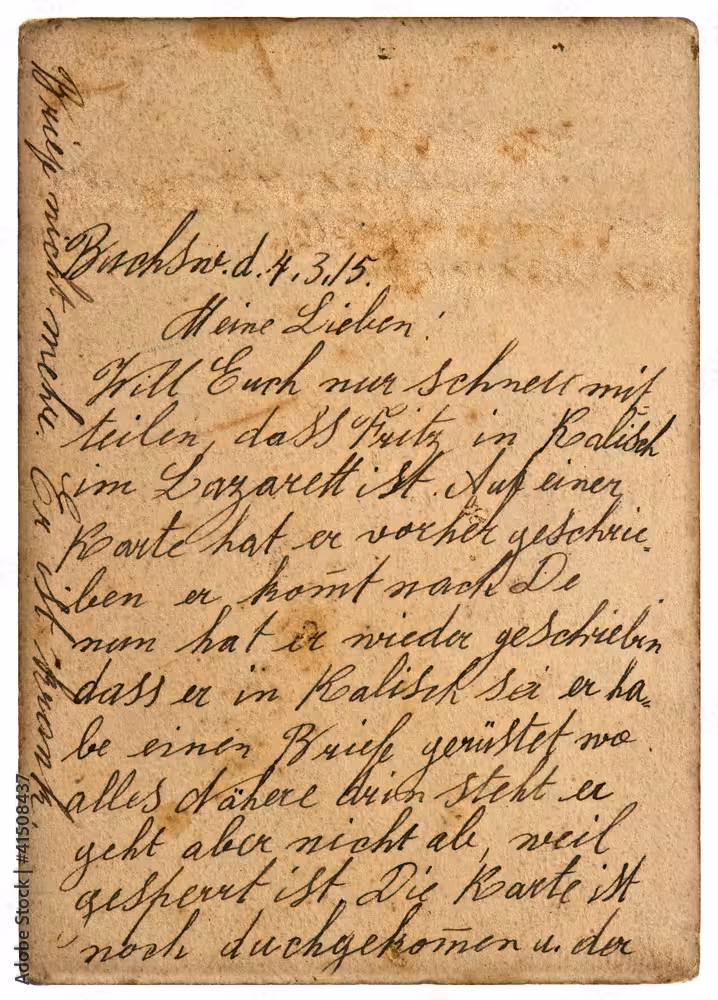 Buchsw. d. 4.3.15.
Meine Lieben!
Will Euch nur schnell mit
teilen, dass Fritz in Kalisch
im Lazarett ist. Auf einer
Karte hat er vorher geschrie-
ben er kom̄t nach De
nun hat er wieder geschrieben
dass er in Kalisch sei er ha-
be einen Briefe gerüstet wo
alles Nähere drin steht er
geht aber nicht ab, weil
gesperrt ist. Die Karte ist
noch duchgekom̄en u. der
Brief nicht mehr. Er ist krank.
Adobe Stock | #41508437